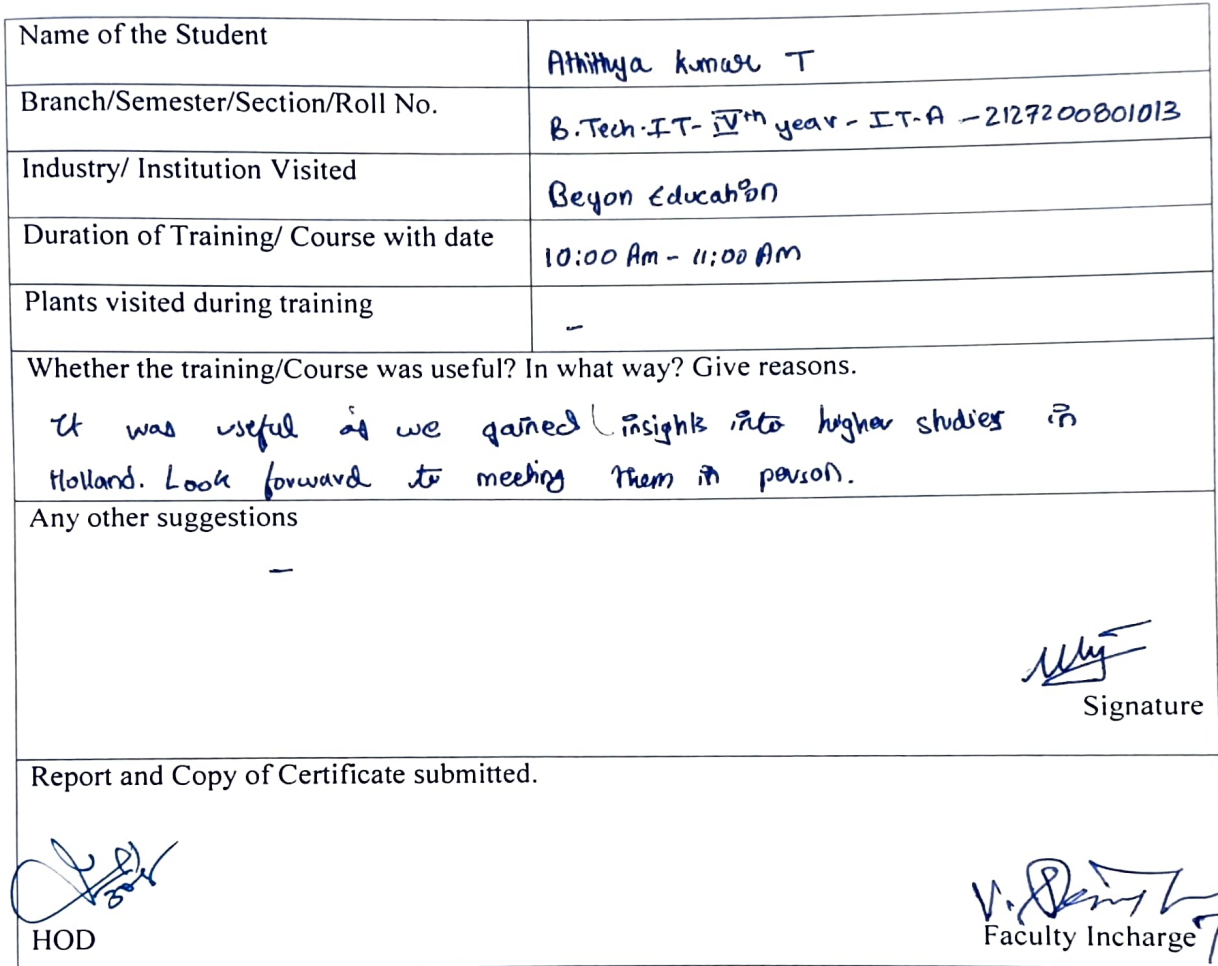 Name of the Student
Athithya kumar T
Branch/Semester/Section/Roll No.
B.Tech.IT- IVth year - IT-A - 2127200801013
Industry/ Institution Visited
Beyon Education
Duration of Training/ Course with date
10:00 Am - 11:00 AM
Plants visited during training
-
Whether the training/Course was useful? In what way? Give reasons.
It was useful as we gained insights into higher studies in
Holland. Look forward to meeting them in person.
Any other suggestions
-
Signature
Report and Copy of Certificate submitted.
HOD
Faculty Incharge